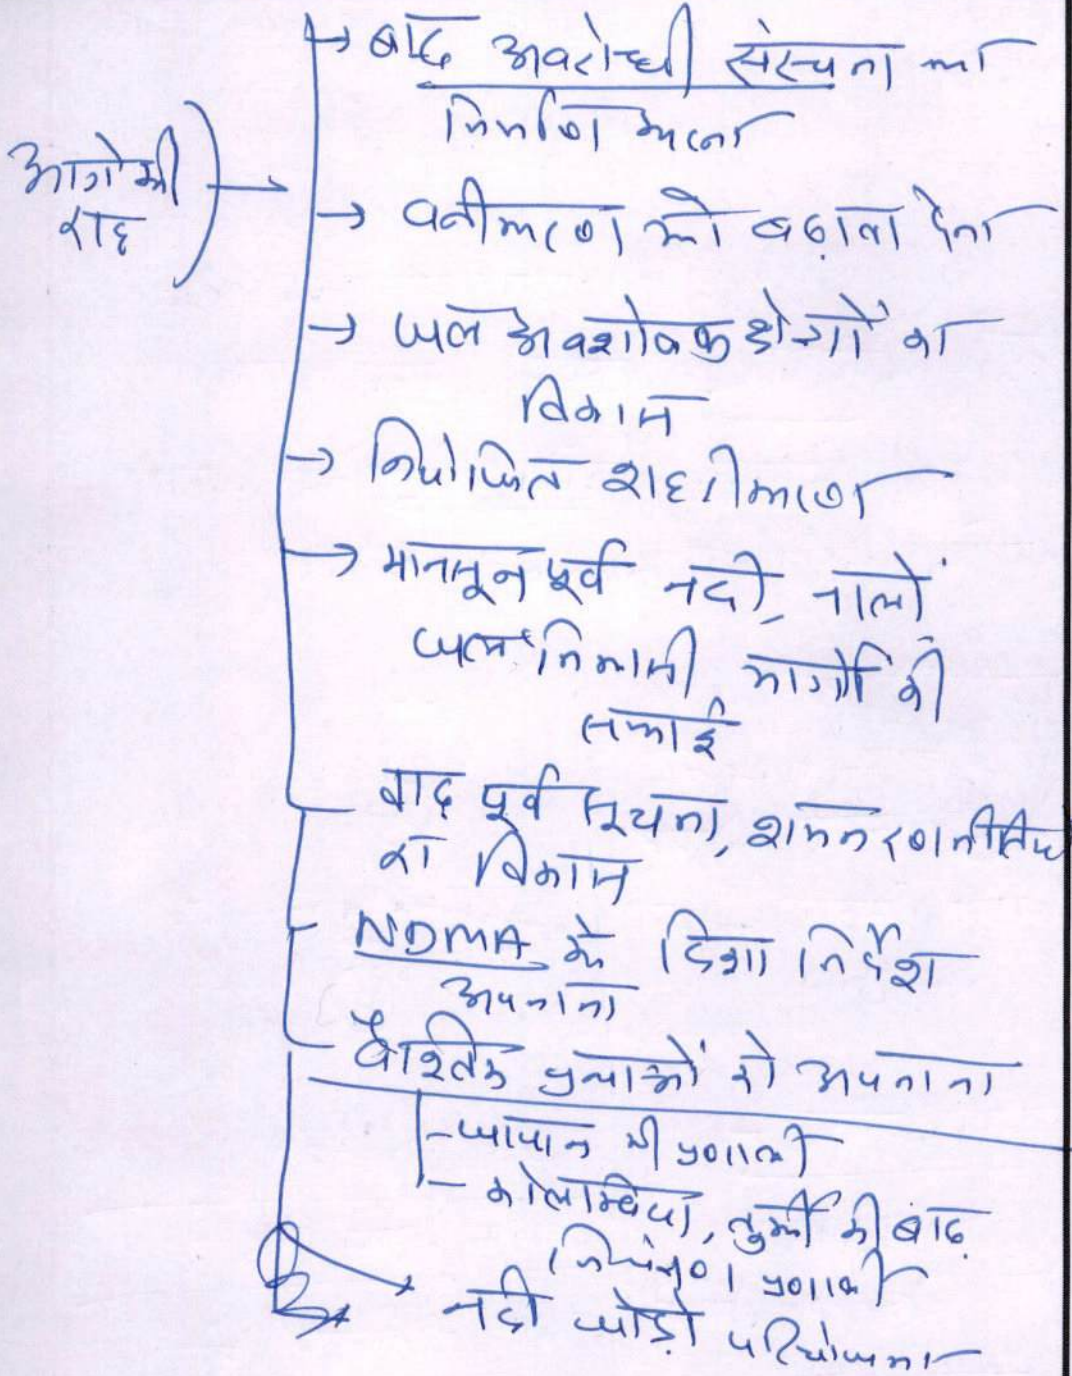 आगे की
राह
→ बाढ़ अवरोधी संरचना का
निर्माण करना
→ वनीकरण को बढ़ावा देना
→ जल अवशोषक क्षेत्रों का
विकास
→ नियोजित शहरीकरण
→ मानसून पूर्व नदी, नालों
जल निकासी मार्गों की
सफाई
बाढ़ पूर्व सूचना, शमन रणनीतियों
का विकास
NDMA के दिशा निर्देश
अपनाना
वैश्विक प्रथाओं को अपनाना
- जापान की प्रणाली
- कोलम्बिया, तुर्की की बाढ़
नियंत्रण प्रणाली
नदी जोड़ो परियोजना